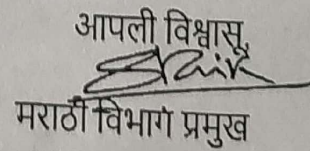 आपली विश्वासू,
मराठी विभाग प्रमुख